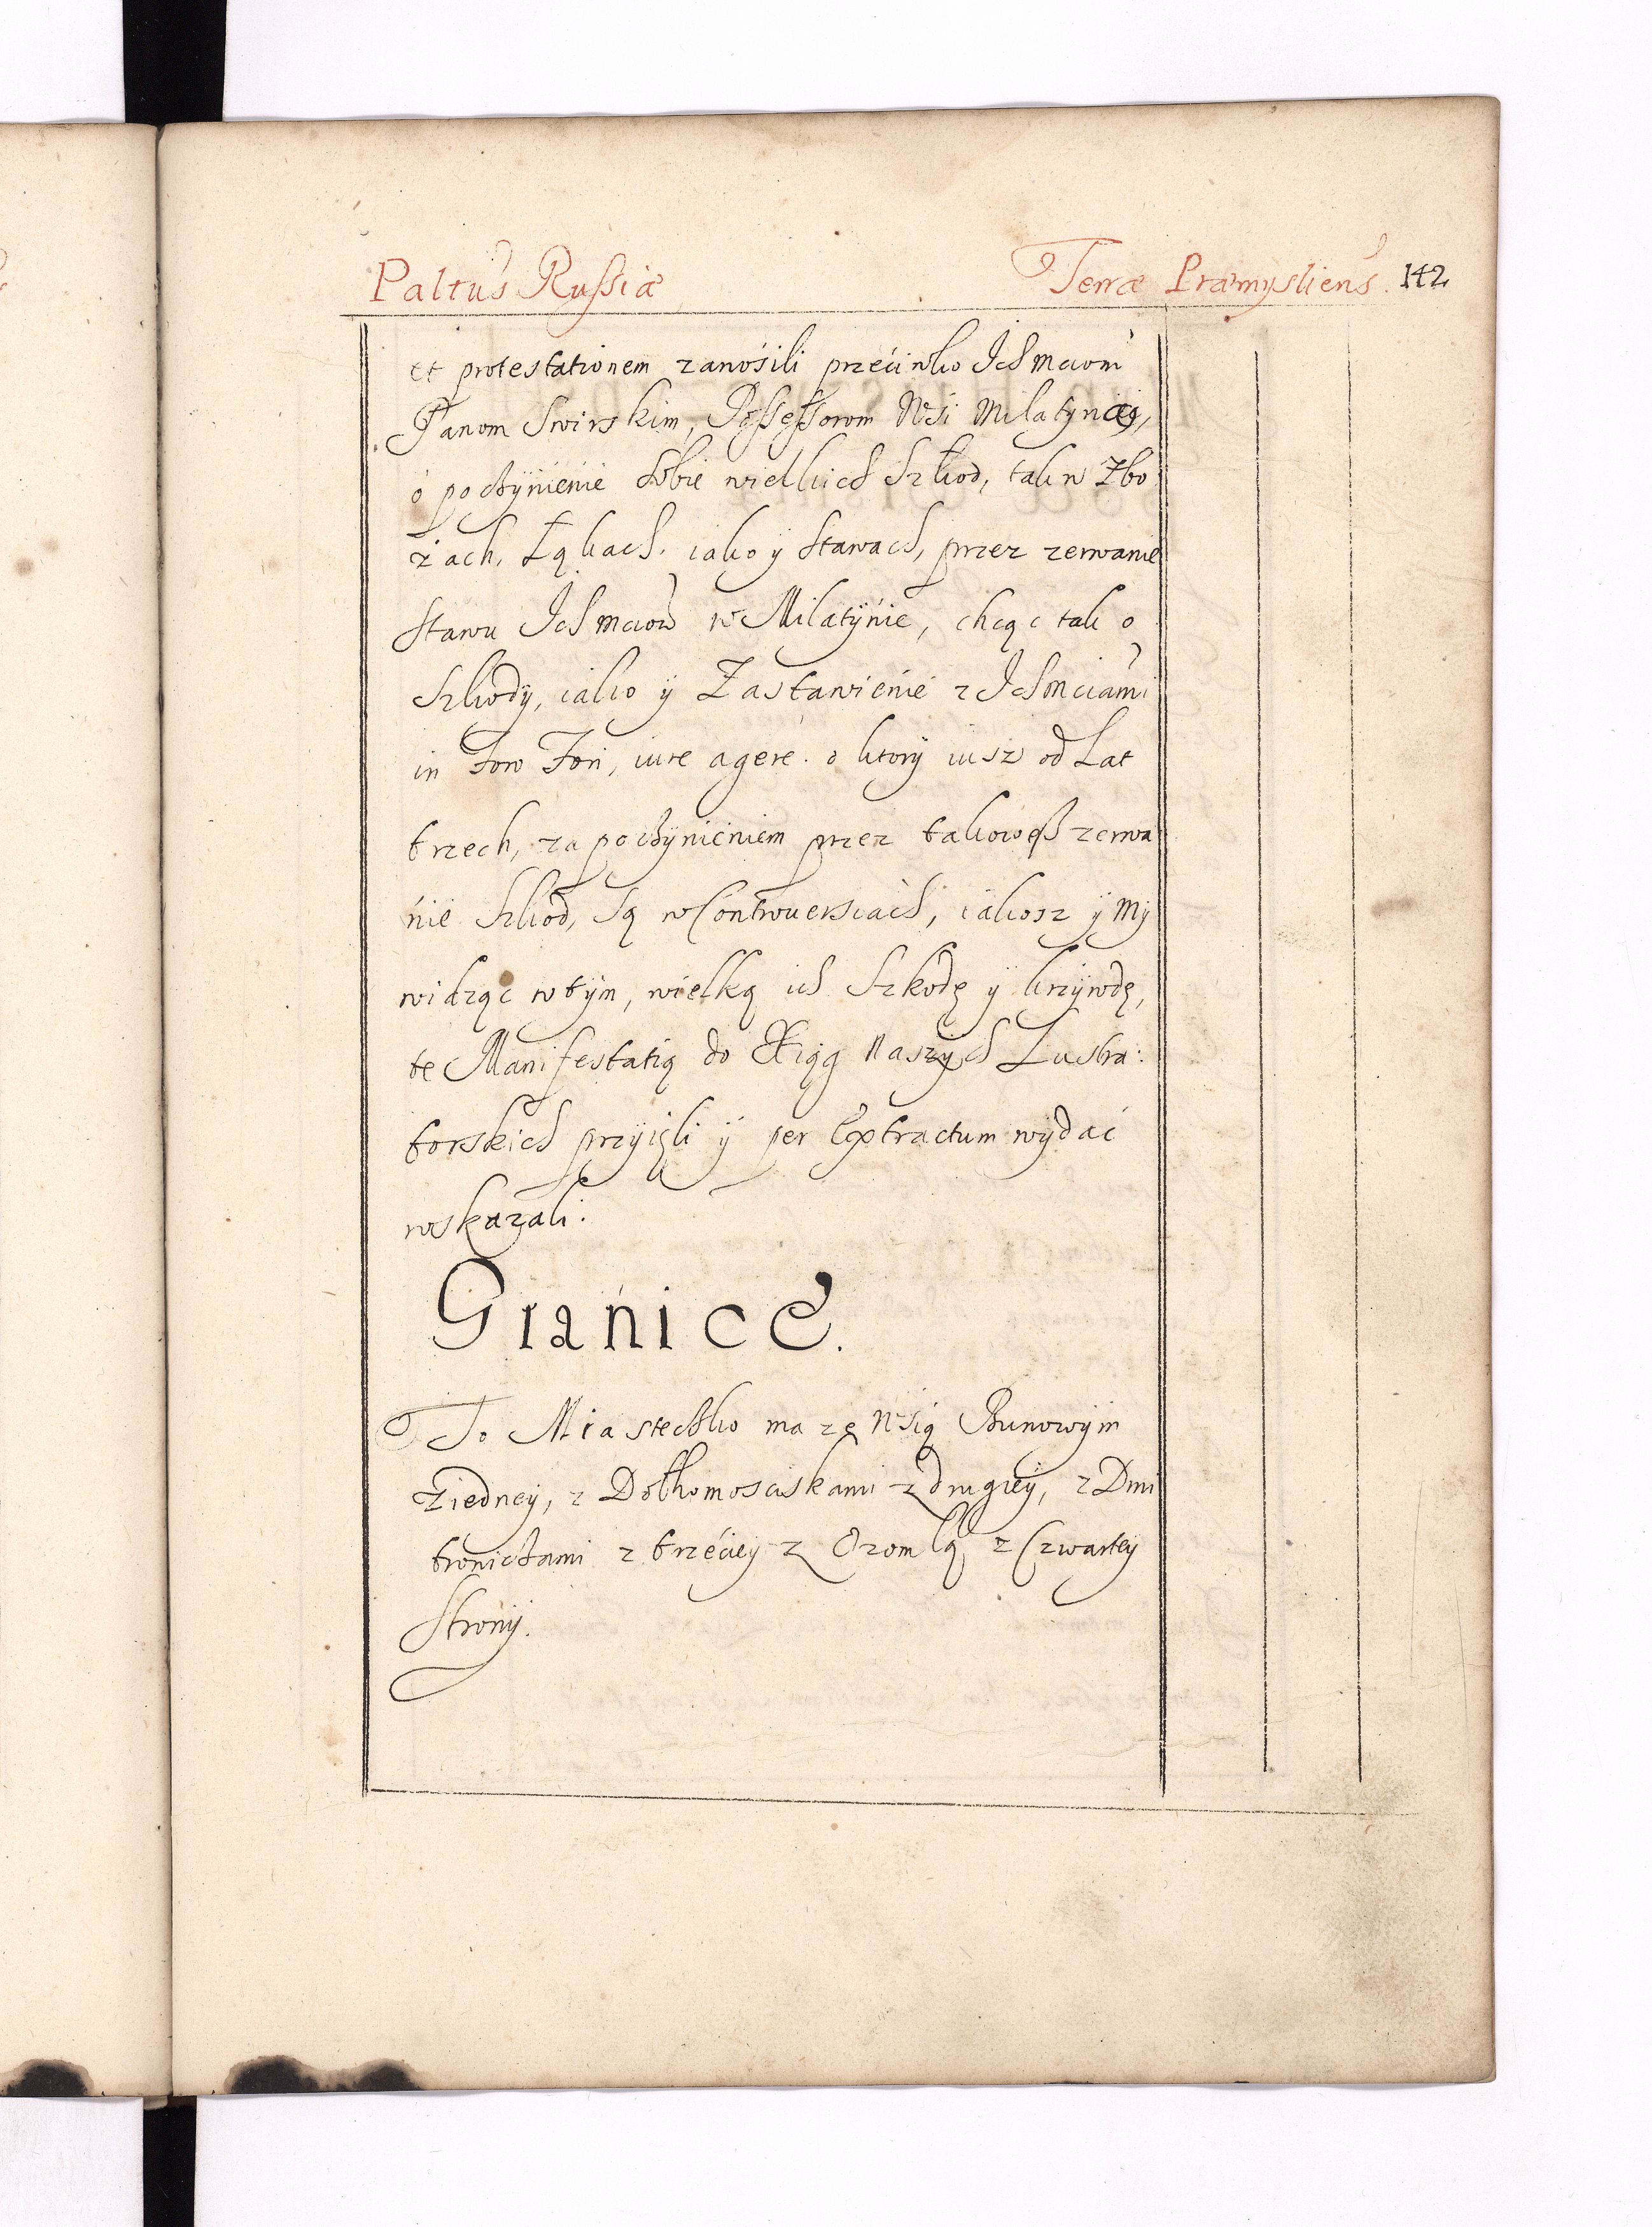 Paltus Russiæ Terræ Præmysliens. 142
et protestationem zanosili przeciwko Ichmciom
Panom Swirskim, Possessorom Wsi Milatyna,
o poczynienie sobie wielkich Szkod, tak w Zbo
żach, Łąkach, iako y Stawach, przez zerwanie
Stawu Ichmciow w Milatynie, chcąc tak o
Szkody, iako y Zastawienie z Ichmciami
in Foro Fori, iure agere. o ktory iusz od Lat
trzech, za poczynieniem przez takowesz zerwa
nie Szkod, są w Controuersiach, iakosz y My
widząc w tym, wielką ich Szkodę y krzywdę,
te Manifestatią do Xiąg Naszych Lustra:
torskich przyięli y per Extractum wydać
wskazali.
Granice.
To Miasteczko ma ze Wsią Bunowym
z iedney, z Dołhomosciskami z drugiey, z Dmi
trowicami z trzeciey z Ozomlą z Czwartey
Strony.